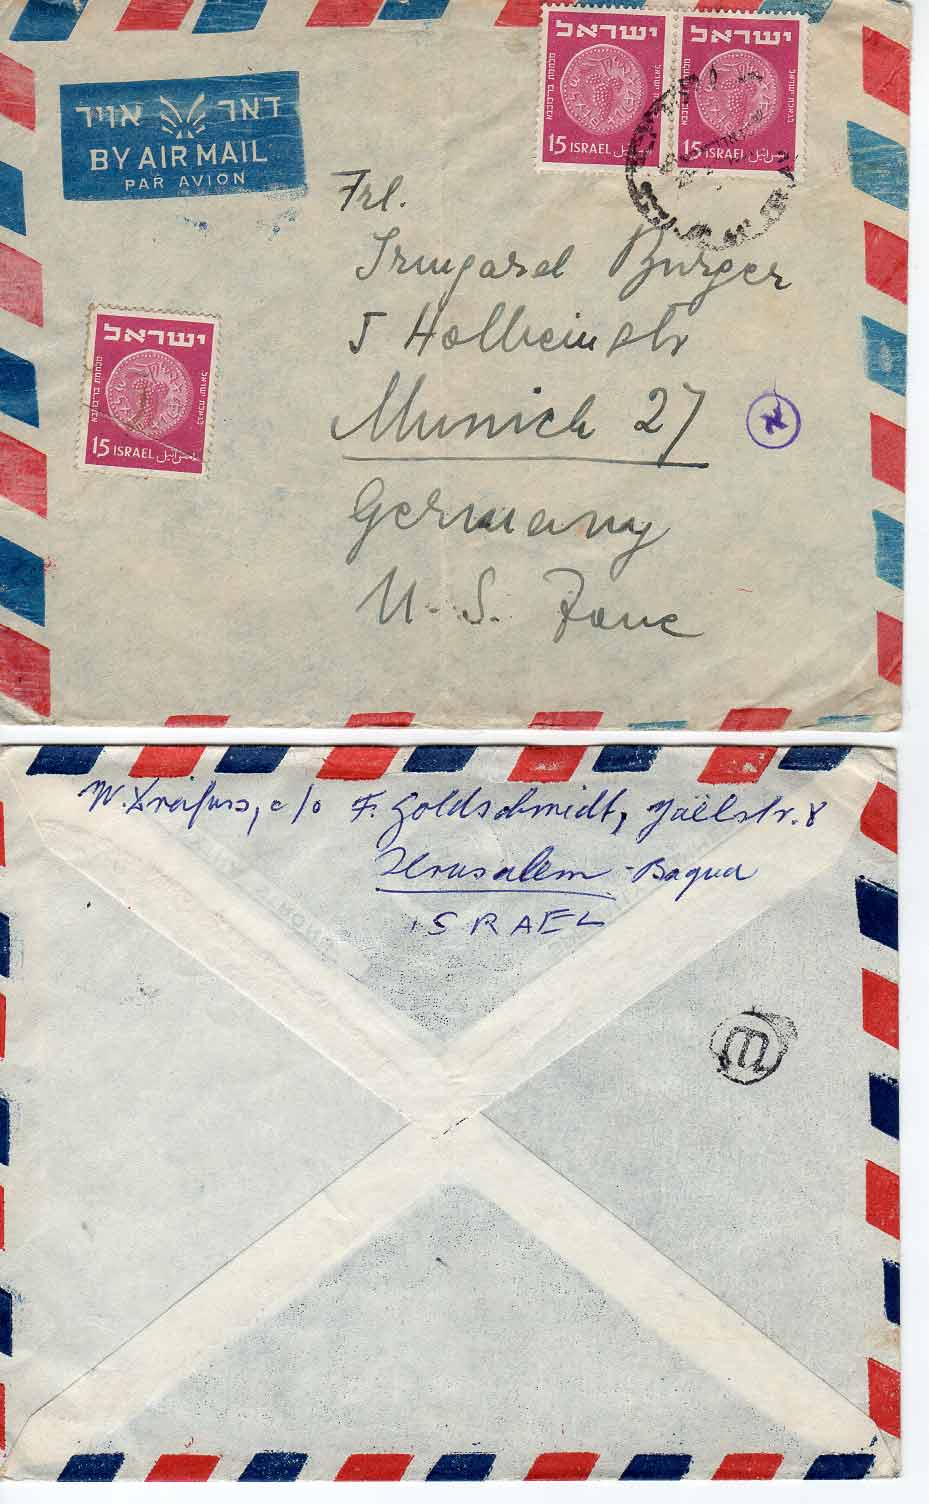 דאר אויר
BY AIR MAIL
PAR AVION
ישראל
15 ISRAEL اسرائيل
ישראל
15 ISRAEL اسرائيل
Frl.
Irmgard Burger
5 Holbeinstr
Munich 27
Germany
U.S. Zone
ישראל
15 ISRAEL اسرائيل
W. Dreifuss, c/o F. Goldschmidt, Jaëlstr. 8
Jerusalem - Baqua
ISRAEL